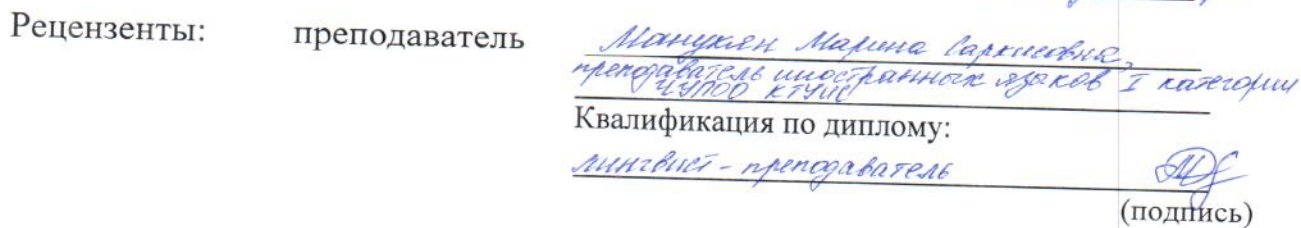 Рецензенты: преподаватель Манукян Марина Саркисовна,
преподаватель иностранных языков I категории
ЧУПОО КТУИС
Квалификация по диплому:
лингвист - преподаватель
(подпись)